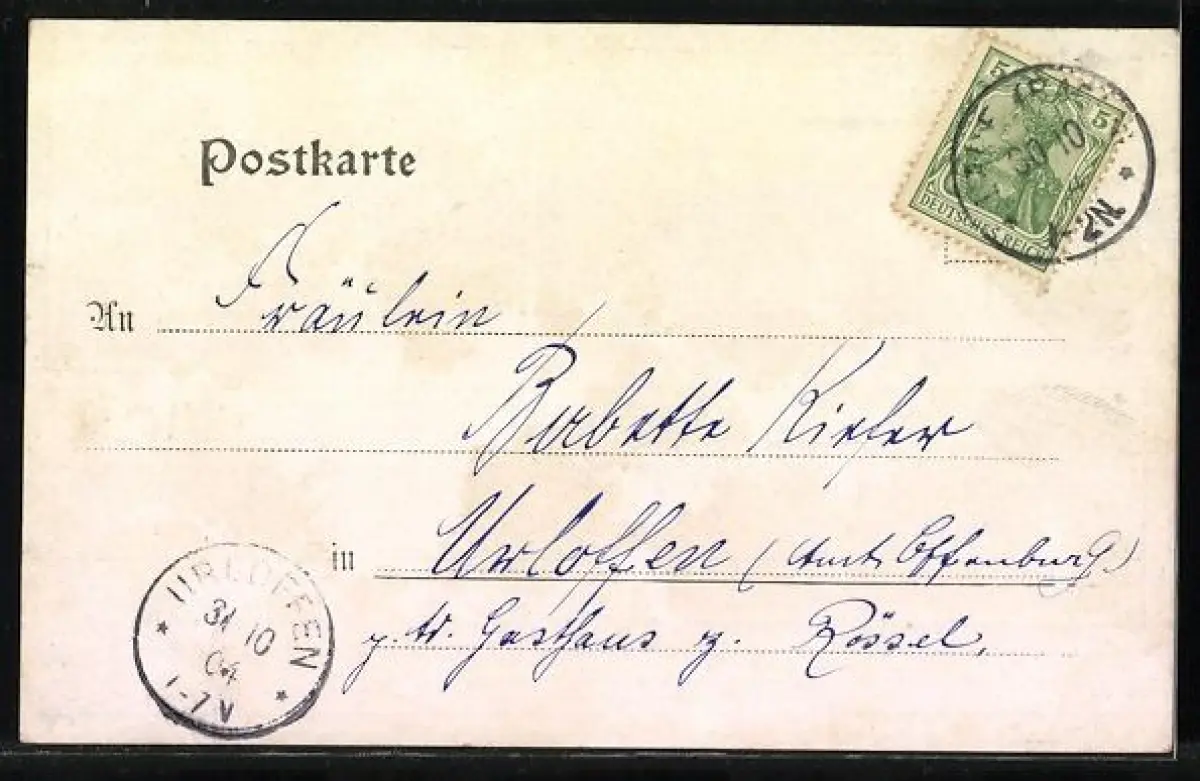 Postkarte
5 5
DEUTSCHES REICH
30 10
An Fräulein
Babette Kiefer
in Urloffen (Amt Offenburg)
p. Ad. Gasthaus z. Rössel.
URLOFFEN
31 10
04
1-7V